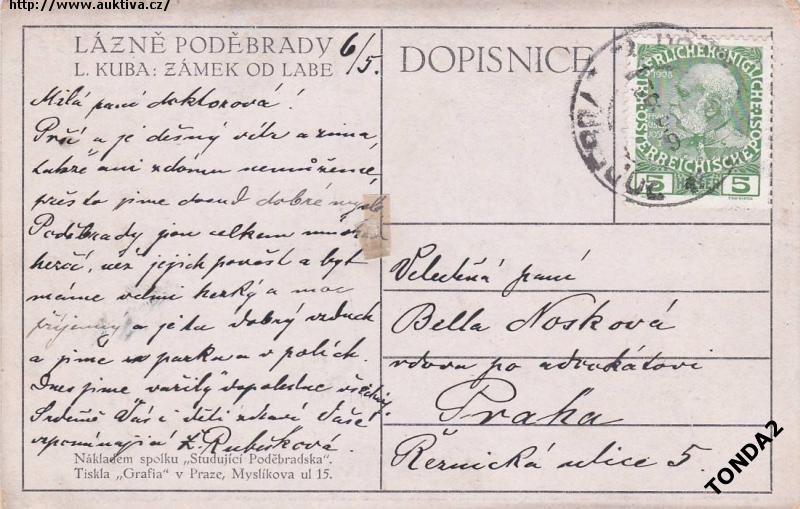 http://www.auktiva.cz/
LÁZNĚ PODĚBRADY
L. KUBA: ZÁMEK OD LABE
6/5.
DOPISNICE
1908
5 HELLER 5
Milá paní doktorová!
Prší a je děsný vítr a zima,
takže ani z domu nemůžeme,
přes to jsme dosud dobré mysli
Poděbrady jsou celkem mnohem
hezčí, než jejich pověst a byt
máme velmi hezký a moc
příjemný a je tu dobrý vzduch
a jímě v parku a v polích.
Dnes jsme vařily dopoledne všechny.
Srdečně Vás i děti zdraví Vaše
vzpomínající Ž. Rubišková.
Velectěná paní
Bella Nosková
vdova po advokátovi
Praha
Řeznická ulice 5.
Nákladem spolku „Studující Poděbradska".
Tiskla „Grafia" v Praze, Myslíkova ul 15.
TONDA2